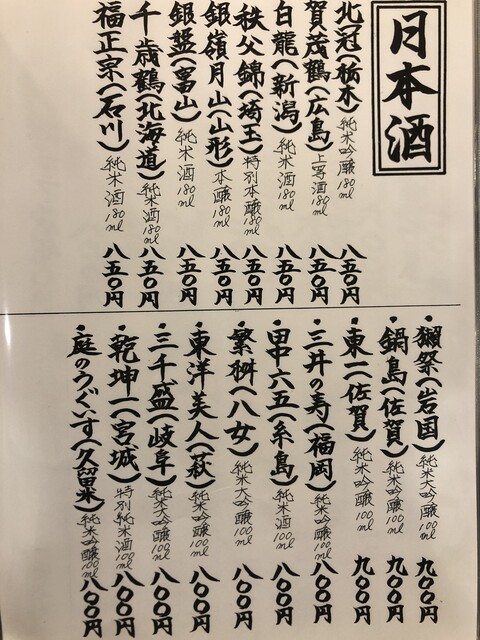 日本酒
北冠(栃木)純米吟醸180ml 八五〇円
賀茂鶴(広島)上等酒180ml 八五〇円
白龍(新潟)純米酒180ml 八五〇円
秩父錦(埼玉)特別本醸180ml 八五〇円
銀嶺月山(山形)本醸180ml 八五〇円
銀盤(富山)純米酒180ml 八五〇円
千歳鶴(北海道)純米酒180ml 八五〇円
福正宗(石川)純米酒180ml 八五〇円
・獺祭(岩国)純米大吟醸100ml 九〇〇円
・鍋島(佐賀)純米吟醸100ml 九〇〇円
・東一(佐賀)純米吟醸100ml 九〇〇円
・三井の寿(福岡)純米吟醸100ml 八〇〇円
・田中六五(糸島)純米酒100ml 八〇〇円
・繁桝(八女)純米大吟醸100ml 八〇〇円
・東洋美人(萩)純米吟醸100ml 八〇〇円
・三千盛(岐阜)純米大吟醸100ml 八〇〇円
・乾坤一(宮城)特別純米酒100ml 八〇〇円
・庭のうぐいす(久留米)純米吟醸100ml 八〇〇円